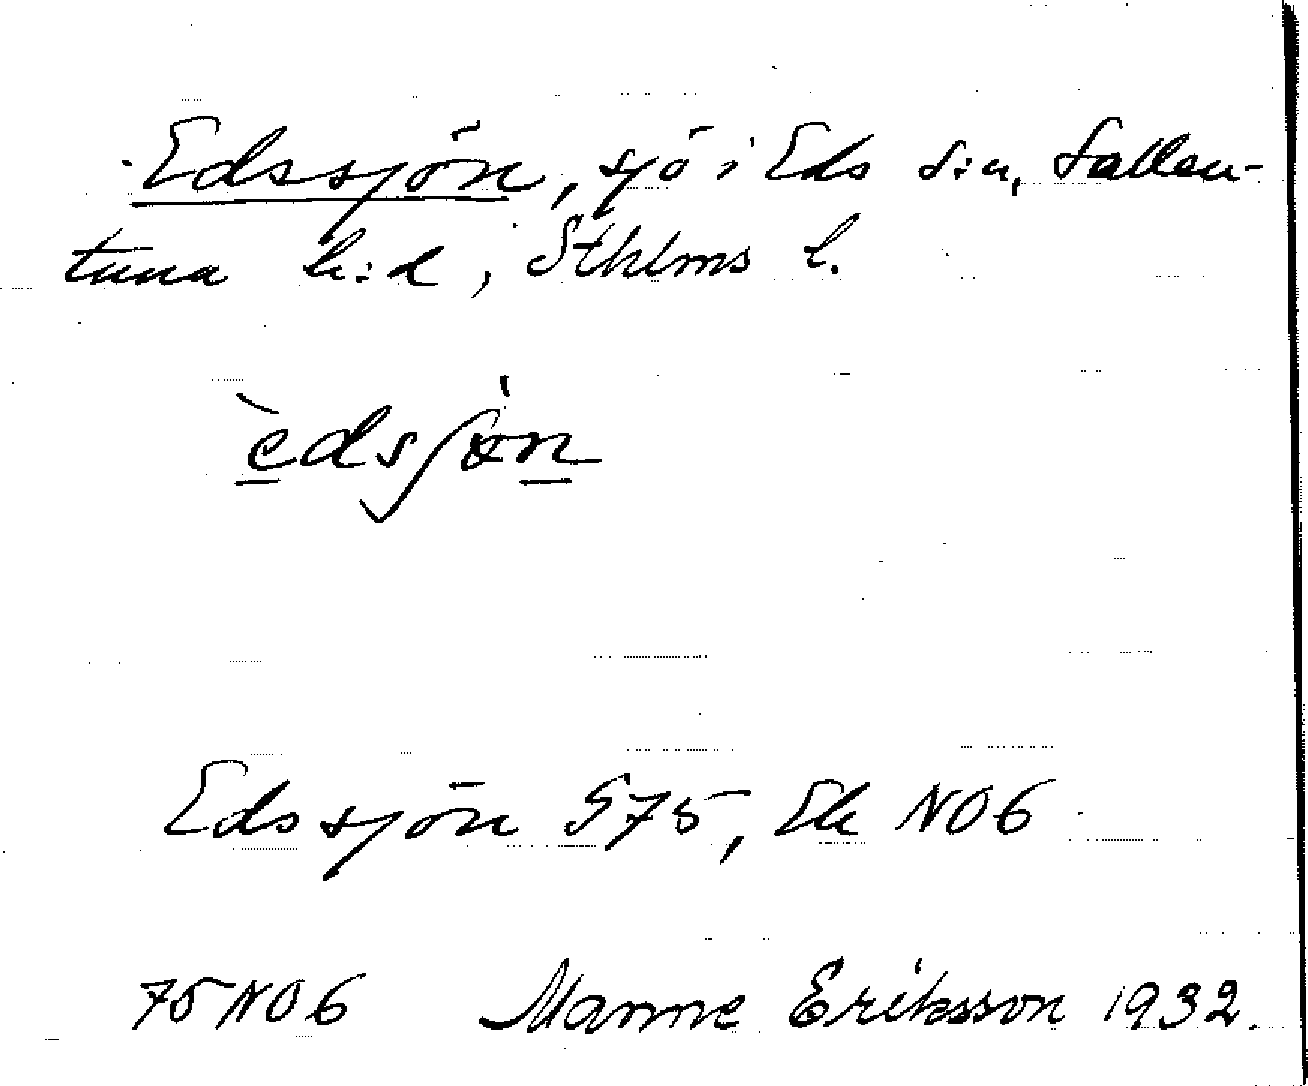 Edssjön, sjö i Eds s:n, Sollen-
tuna h:d, Sthlms l.
èdsʃø̀n
Edssjön G75, Ek NO6
75 NO6 Manne Eriksson 1932.